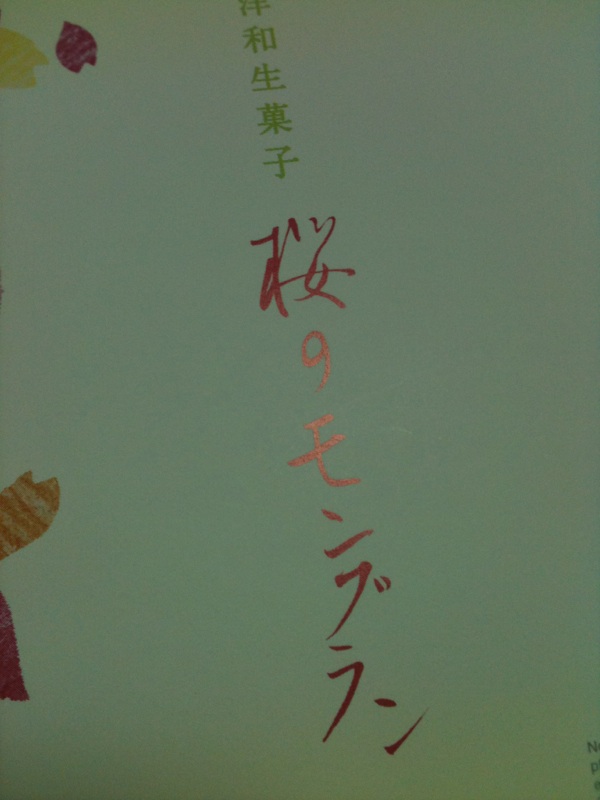 洋和生菓子
桜のモンブラン